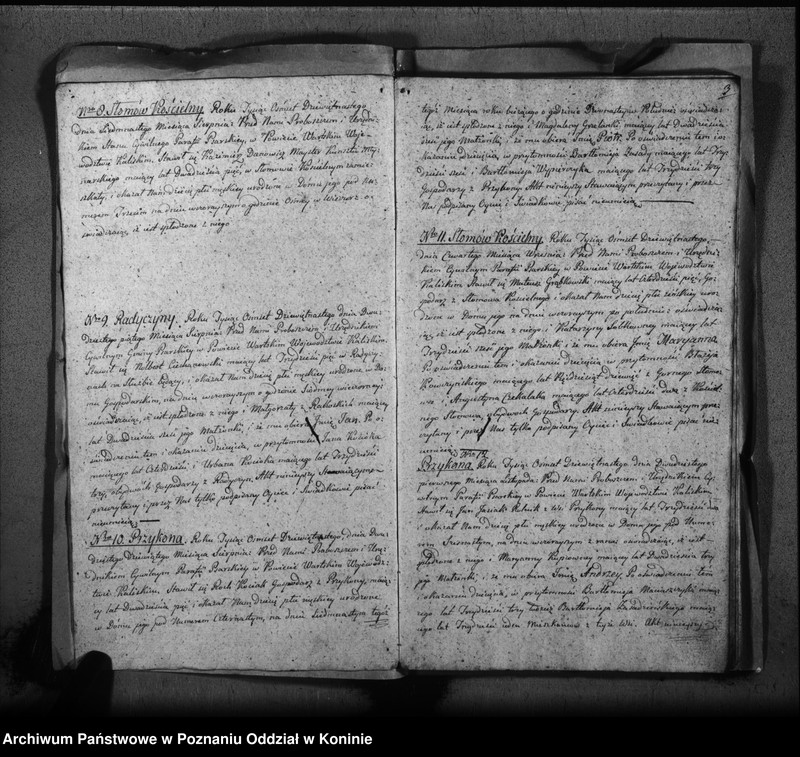 Nro 8. Słomów Kościelny. Roku Tysiąc Osmset Dziewiętnastego
dnia Siedmnastego Miesiąca Sierpnia Przed Nami Proboszczem i Urzędni-
kiem Stanu Cywilnego Parafii Psarskiej, w Powiecie Wartskim Woje-
wodztwie Kaliskim, Stawił się Kazimierz
maiący lat Dwadzieścia pięć, w Słomowie Kościelnym zamie-
szkały, i okazał Nam dziecię płci męskiey urodzone w Domu jego pod Nu-
merem Trzecim na dniu wczorayszym o godzinie Osmey w Wieczor o-
świadczaiąc, iż iest spłodzone z niego
Nro 9. Radyczyny. Roku Tysiąc Osmset Dziewiętnastego dnia Dwu-
dziestego piątego Miesiąca Sierpnia Przed Nami Proboszczem i Urzędnikiem
Cywilnym Gminy Psarskiey w Powiecie Wartskim Wojewodztwie Kaliskim
Stawił się Ciechanowski maiący lat Trzydzieści pięć w Radyczy-
nach na służbie będący, i okazał Nam dziecię płci męskiey urodzone w Do-
mu Gospodarskim, na dniu wczorayszym o godzinie Siodmey wieczorney
oświadczaiąc, iż iest spłodzone z niego i Małgorzaty z maiącey
lat Dwadzieścia sześć jego Małżonki, i że mu obiera Imię Jan. Po o-
świadczeniu tem i okazaniu dziecięcia, w przytomności Jana
maiącego lat Czterdzieści i Urbana maiącego lat Trzydzieści
trzy, obydwóch Gospodarzy z Radyczyn, Akt ninieyszy Stawaiącym
przeczytany i przez Nas tylko podpisany Oyciec i Swiadkowie pisać
nieumieią
Nro 10. Przykona. Roku Tysiąc Osmset Dziewiętnastego dnia Dwu-
dziestego Dziewiątego Miesiąca Sierpnia Przed Nami Proboszczem i Urzę-
dnikiem Cywilnym Parafii Psarskiey w Powiecie Wartskim Wojewodz-
twie Kaliskim, Stawił się Roch Kościak Gospodarz z Przykony, maią-
cy lat Dwadzieścia pięć i okazał Nam dziecię płci męskiey urodzone
w Domu jego pod Numerem Czternastym, na dniu Siedmnastym tegoż
3
tegoż Miesiąca roku bieżącego o godzinie Dwunastey w Południe oświadcza-
iąc, iż iest spłodzone z niego i Magdaleny maiącey lat Dwadzieścia
sześć jego Małżonki, i że mu obiera Imię Piotr. Po oświadczeniu tem i o-
kazaniu dziecięcia, w przytomności Bartłomieja Zasady maiącego lat Trzy-
dzieści sześć i Bartłomieja maiącego lat Trzydzieści trzy
Gospodarzy z Przykony Akt ninieyszy Stawaiącym przeczytany i przez
Nas podpisany Oyciec i Swiadkowie pisać nieumieią
Nro 11. Słomów Kościelny. Roku Tysiąc Osmset Dziewiętnastego
dnia Czwartego Miesiąca Września Przed Nami Proboszczem i Urzędni-
kiem Cywilnym Parafii Psarskiey w Powiecie Wartskim Wojewodztwie
Kaliskim Stawił się Mateusz Grabkowski maiący lat Czterdzieści pięć, Go-
spodarz z Słomowa Kościelnego i okazał Nam dziecię płci żeńskiey uro-
dzone w Domu jego na dniu wczorayszym po południu oświadcza-
iąc, iż iest spłodzone z niego i Katarzyny maiącey lat
Trzydzieści sześć jego Małżonki i że mu obiera Imię Maryanna.
Po oświadczeniu tem i okazaniu dziecięcia w przytomności Błażeja
maiącego lat Pięćdziesiąt dziewięć z Gornego Słomo-
wa i Augustyna maiącego lat Czterdzieści dwa z Kościel-
nego Słomowa, obydwoch Gospodarzy Akt ninieyszy Stawaiącym prze-
czytany i przez Nas tylko podpisany Oyciec i Swiadkowie pisać nieu-
mieią
Nro 12.
Przykona. Roku Tysiąc Osmset Dziewiętnastego dnia Dwudziestego
pierwszego Miesiąca Listopada Przed Nami Proboszczem i Urzędnikiem Cy-
wilnym Parafii Psarskiey w Powiecie Wartskim Wojewodztwie Kaliskim
Stawił się Jan Rolnik z Wsi Przykony maiący lat Trzydzieści dwa
i okazał Nam dziecię płci męskiey urodzone w Domu jego pod Nume-
rem Szesnastym, na dniu wczorayszym z rana oświadczaiąc, iż iest
spłodzone z niego i Maryanny maiącey lat Dwadzieścia trzy
jego Małżonki i że mu obiera Imię Andrzey. Po oświadczeniu tem
i okazaniu dziecięcia, w przytomności Bartłomieja maią-
cego lat Trzydzieści trzy tudzież Bartłomieja maią-
cego lat Trzydzieści ieden Mieszkańców z teyże Wsi. Akt ninieyszy
Archiwum Państwowe w Poznaniu Oddział w Koninie